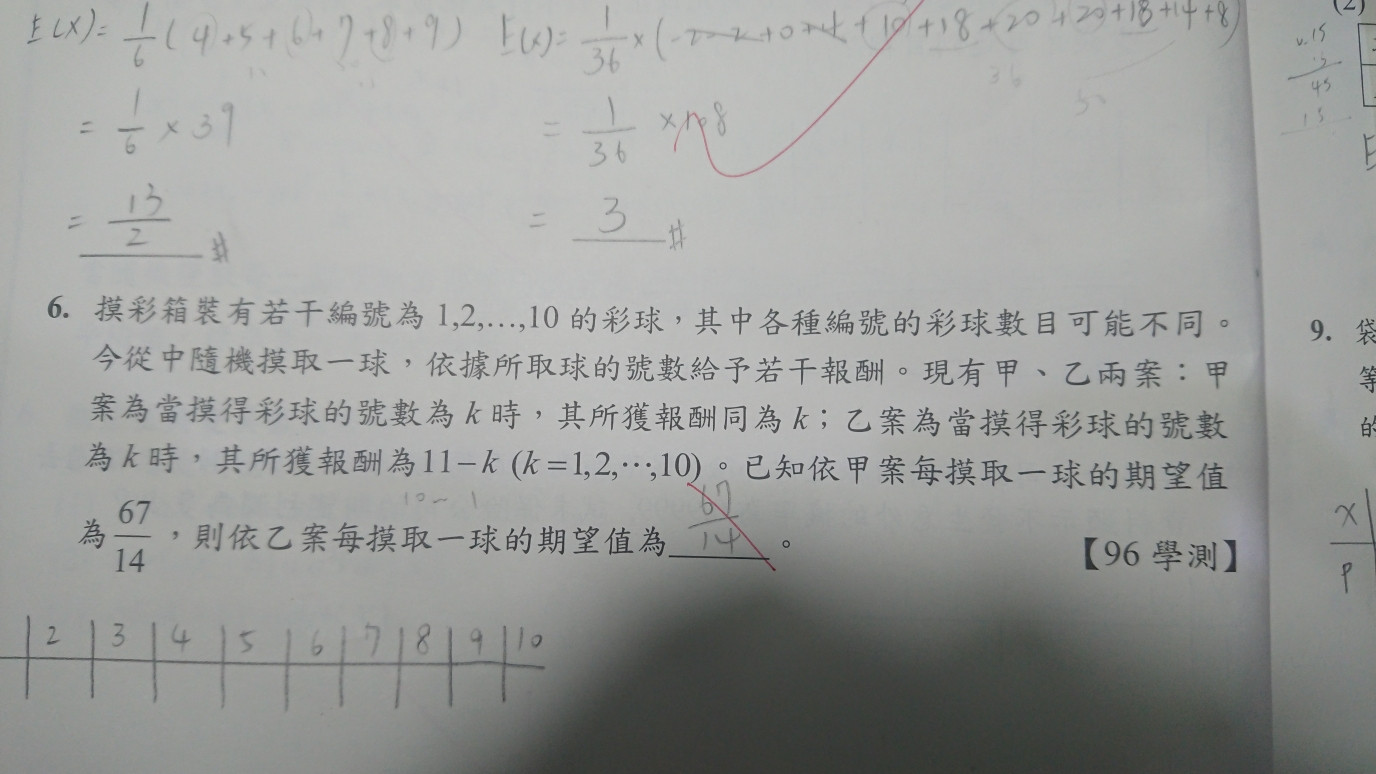 E(X)= 1/6 (4+5+6+7+8+9) E(x)= 1/36 ×( +0+4+10+18+20+20+18+14+8)
= 1/6 × 39 = 1/36 ×108
= 13/2 # = 3 #
(2)
15
45
15
6. 摸彩箱裝有若干編號為 1,2,…,10 的彩球，其中各種編號的彩球數目可能不同。
今從中隨機摸取一球，依據所取球的號數給予若干報酬。現有甲、乙兩案：甲
案為當摸得彩球的號數為 k 時，其所獲報酬同為 k；乙案為當摸得彩球的號數
為 k 時，其所獲報酬為11−k (k=1,2,⋯,10)。已知依甲案每摸取一球的期望值
10~1
為 67/14，則依乙案每摸取一球的期望值為 67/14 。 【96 學測】
2 3 4 5 6 7 8 9 10
9. 袋
等
的
X
P